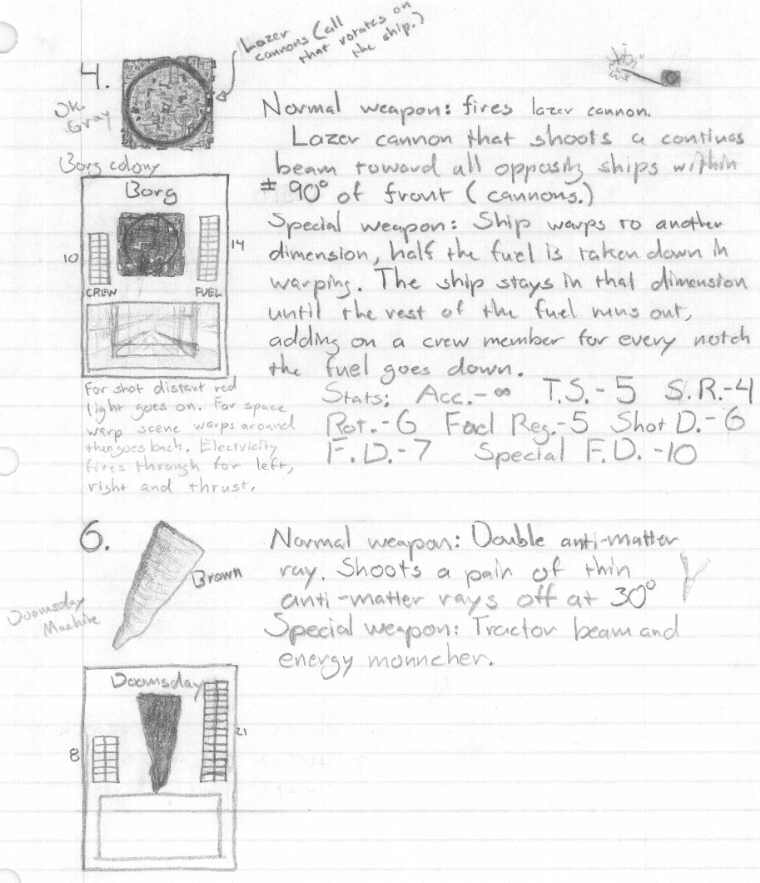 Lazer
cannons (all
that rotates on
the ship.)
4.
Dk.
Gray
Borg colony
Normal weapon: fires lazer cannon.
Lazer cannon that shoots a continus
beam toward all opposing ships within
± 90° of front (cannons.)
Special weapon: Ship warps to another
dimension, half the fuel is taken down in
warping. The ship stays in that dimension
until the rest of the fuel runs out,
adding on a crew member for every notch
the fuel goes down.
Stats: Acc.-∞ T.S.-5 S.R.-4
Rot.-6 Fuel Reg.-5 Shot D.-6
F.D.-7 Special F.D.-10
Borg
10
14
CREW
FUEL
For shot distant red
light goes on. For space
warp scene warps around
then goes back. Electricity
fires through for left,
right and thrust.
6.
Brown
Doomsday
Machine
Normal weapon: Double anti-matter
ray. Shoots a pair of thin
anti-matter rays off at 30°
Special weapon: Tractor beam and
energy monncher.
Doomsday
8
21